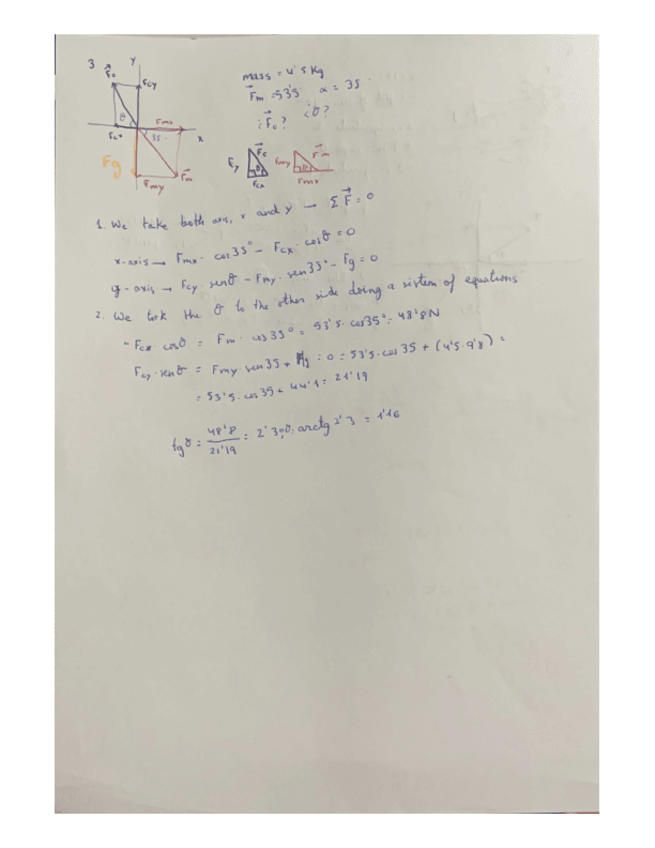 3
y
F⃗c
Fcy
θ
Fmx
Fcx
35
x
Fg
Fmy
F⃗m
mass = 4'5 kg
F⃗m = 53'5 α = 35
¿F⃗c? ¿θ?
Fy
F⃗c
θ
Fcx
Fmy
F⃗m
Fmx
1. We take both axis, x and y → Σ F⃗ = 0
x-axis → Fmx · cos35° - Fcx · cosθ = 0
y-axis → Fcy · senθ - Fmy · sen35° - Fg = 0
2. We took the θ to the other side doing a sistem of equations
- Fcx · cosθ = Fm · cos35° = 53'5 · cos35° = 48'8N
Fcy · senθ = Fmy · sen35 + : 0 = 53'5 · cos35 + (4'5 · 9'8) =
= 53'5 · cos35 + 44'1 = 21'19
tgθ = 48'8 / 21'19 = 2'3 ; θ = arctg 2'3 = 1'16